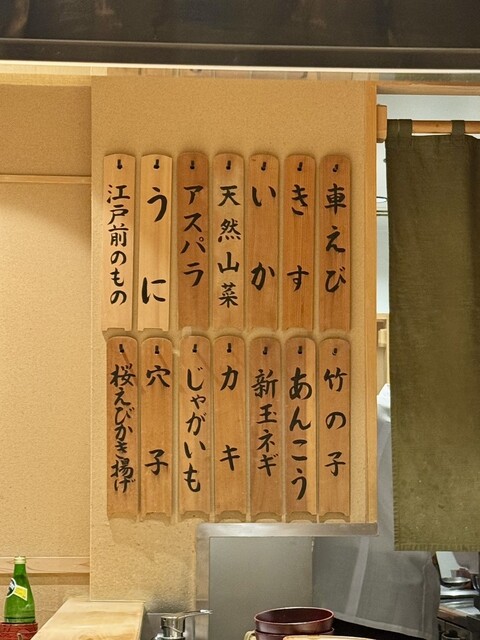 車えび
きす
いか
天然山菜
アスパラ
うに
江戸前のもの
竹の子
あんこう
新玉ネギ
カキ
じゃがいも
穴子
桜えびかき揚げ